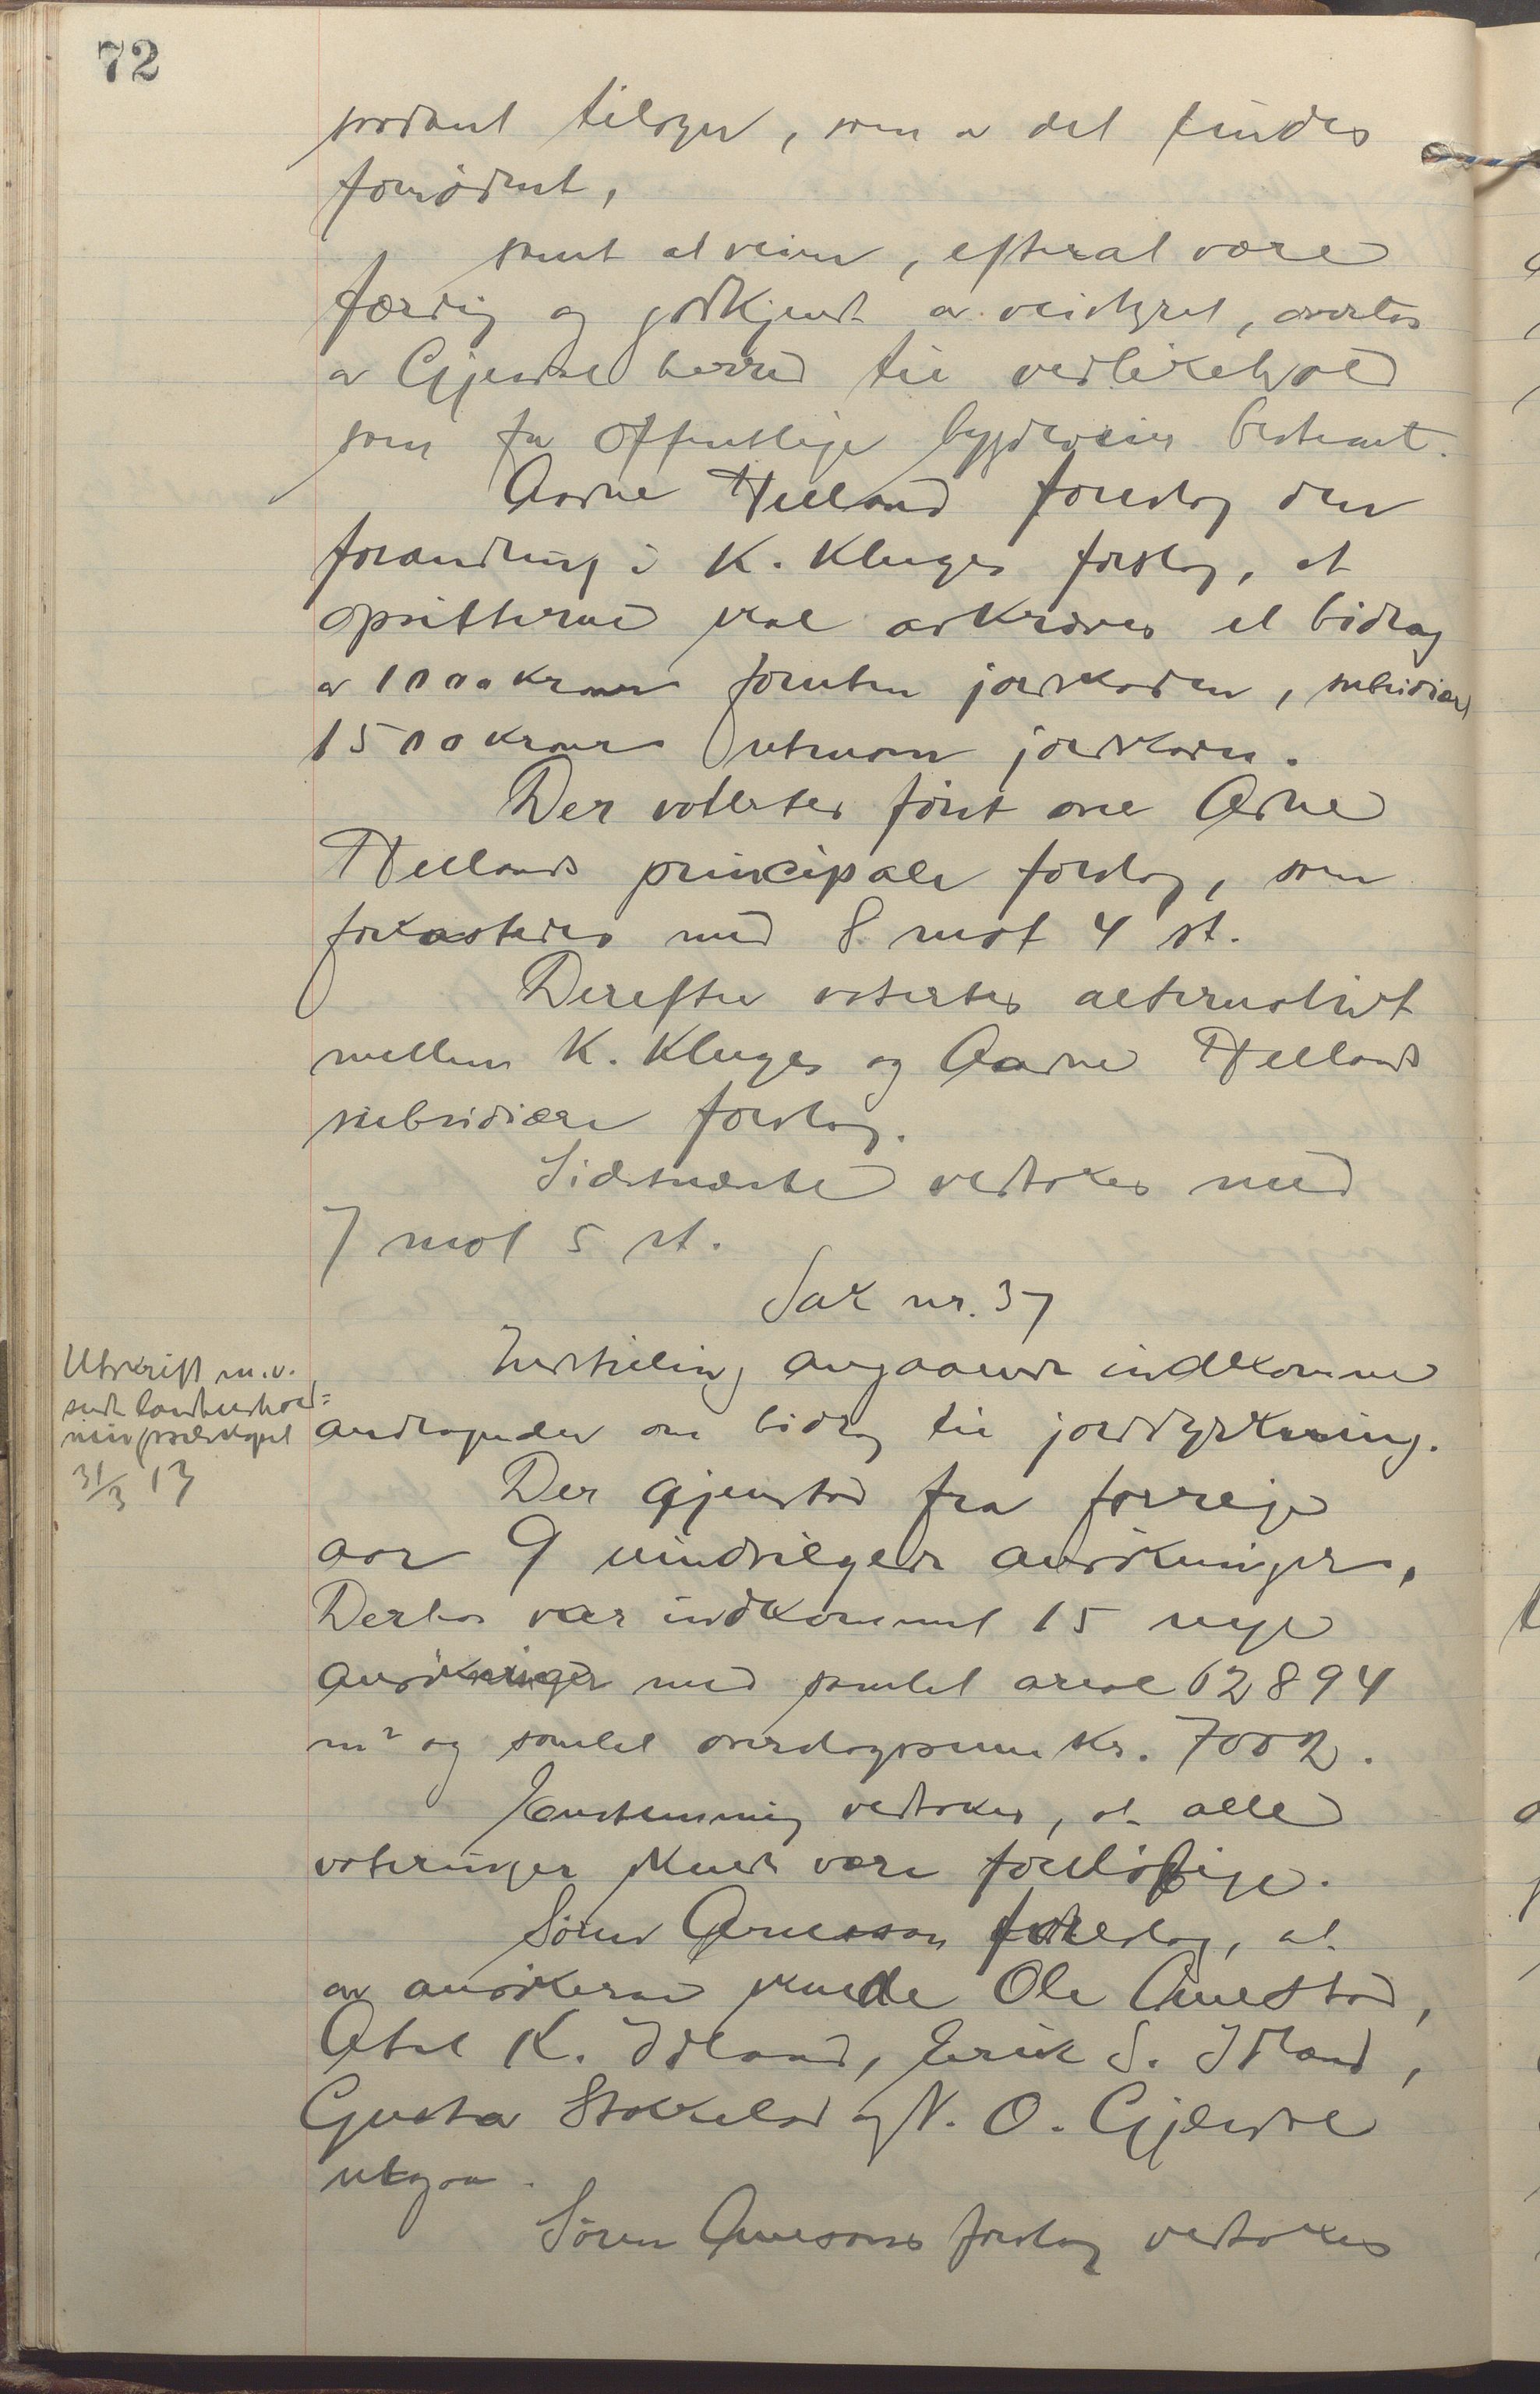 72
saadant tilsyn, som av det findes
fornødent,
samt at veien, efterat være
færdig og godkjendt av veistyret, overtas
av Gjesdal herred til vedlikehold
som for offentlige bygdeveier bestemt.
Aadne Helland foreslog den
forandring i K. Kluges forslag, at
opsitterne skal avkræves et bidrag
av 1000 kroner foruten jordskaden, subsidiært
1500 kroner utenom jordskaden.
Der votertes først over Adne
Hellands principale forslag, som
forkastedes med 8 mot 4 st.
Derefter votertes alternativt
mellem K. Kluges og Aadne Hellands
subsidiære forslag.
Sidstnævnte vedtokes med
7 mot 5 st.
Sak nr. 37
Utskrift m.v.
sendt landhushold=
ningsselskapet
31/3 13
Indstilling angaaende indkomne
andragender om bidrag til jorddyrkning.
Der gjenstod fra forrige
aar 9 uindvilgede ansøkninger,
Derhos var indkommet 15 nye
ansøkninger med samlet areal 62894
m² og samlet overslagssum kr. 7002.
Enstemmig vedtokes, at alle
voteringer skulde være foreløbige.
Søren Arnesson foreslog, at
av ansøkerne skulde Ole Auestad,
Abel K. Idland, Erik S. Idland,
Gusta Stokkeland og N. O. Gjesdal
utgaa.
Søren Arnesons forslag vedtokes